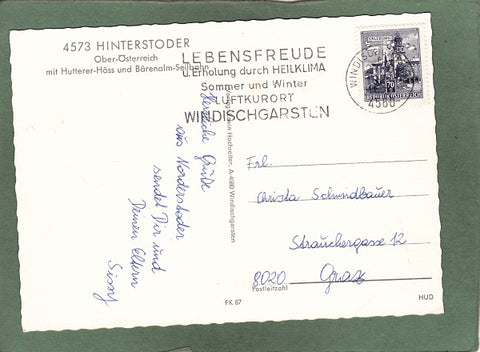 4573 HINTERSTODER
Ober-Österreich
mit Hutterer-Höss und Bärenalm-Seilbahn
LEBENSFREUDE
u. Erholung durch HEILKLIMA
Sommer und Winter
LUFTKURORT
WINDISCHGARSTEN
4580
Herzliche Grüße
aus Vorderstoder
sendet Dir und
Deinen Eltern
Sissy
Hochreiter, A-4580 Windischgarsten
Frl.
Christa Schmidbauer
Strauchergasse 12
8020 Graz
Postleitzahl
FK 87
HUD